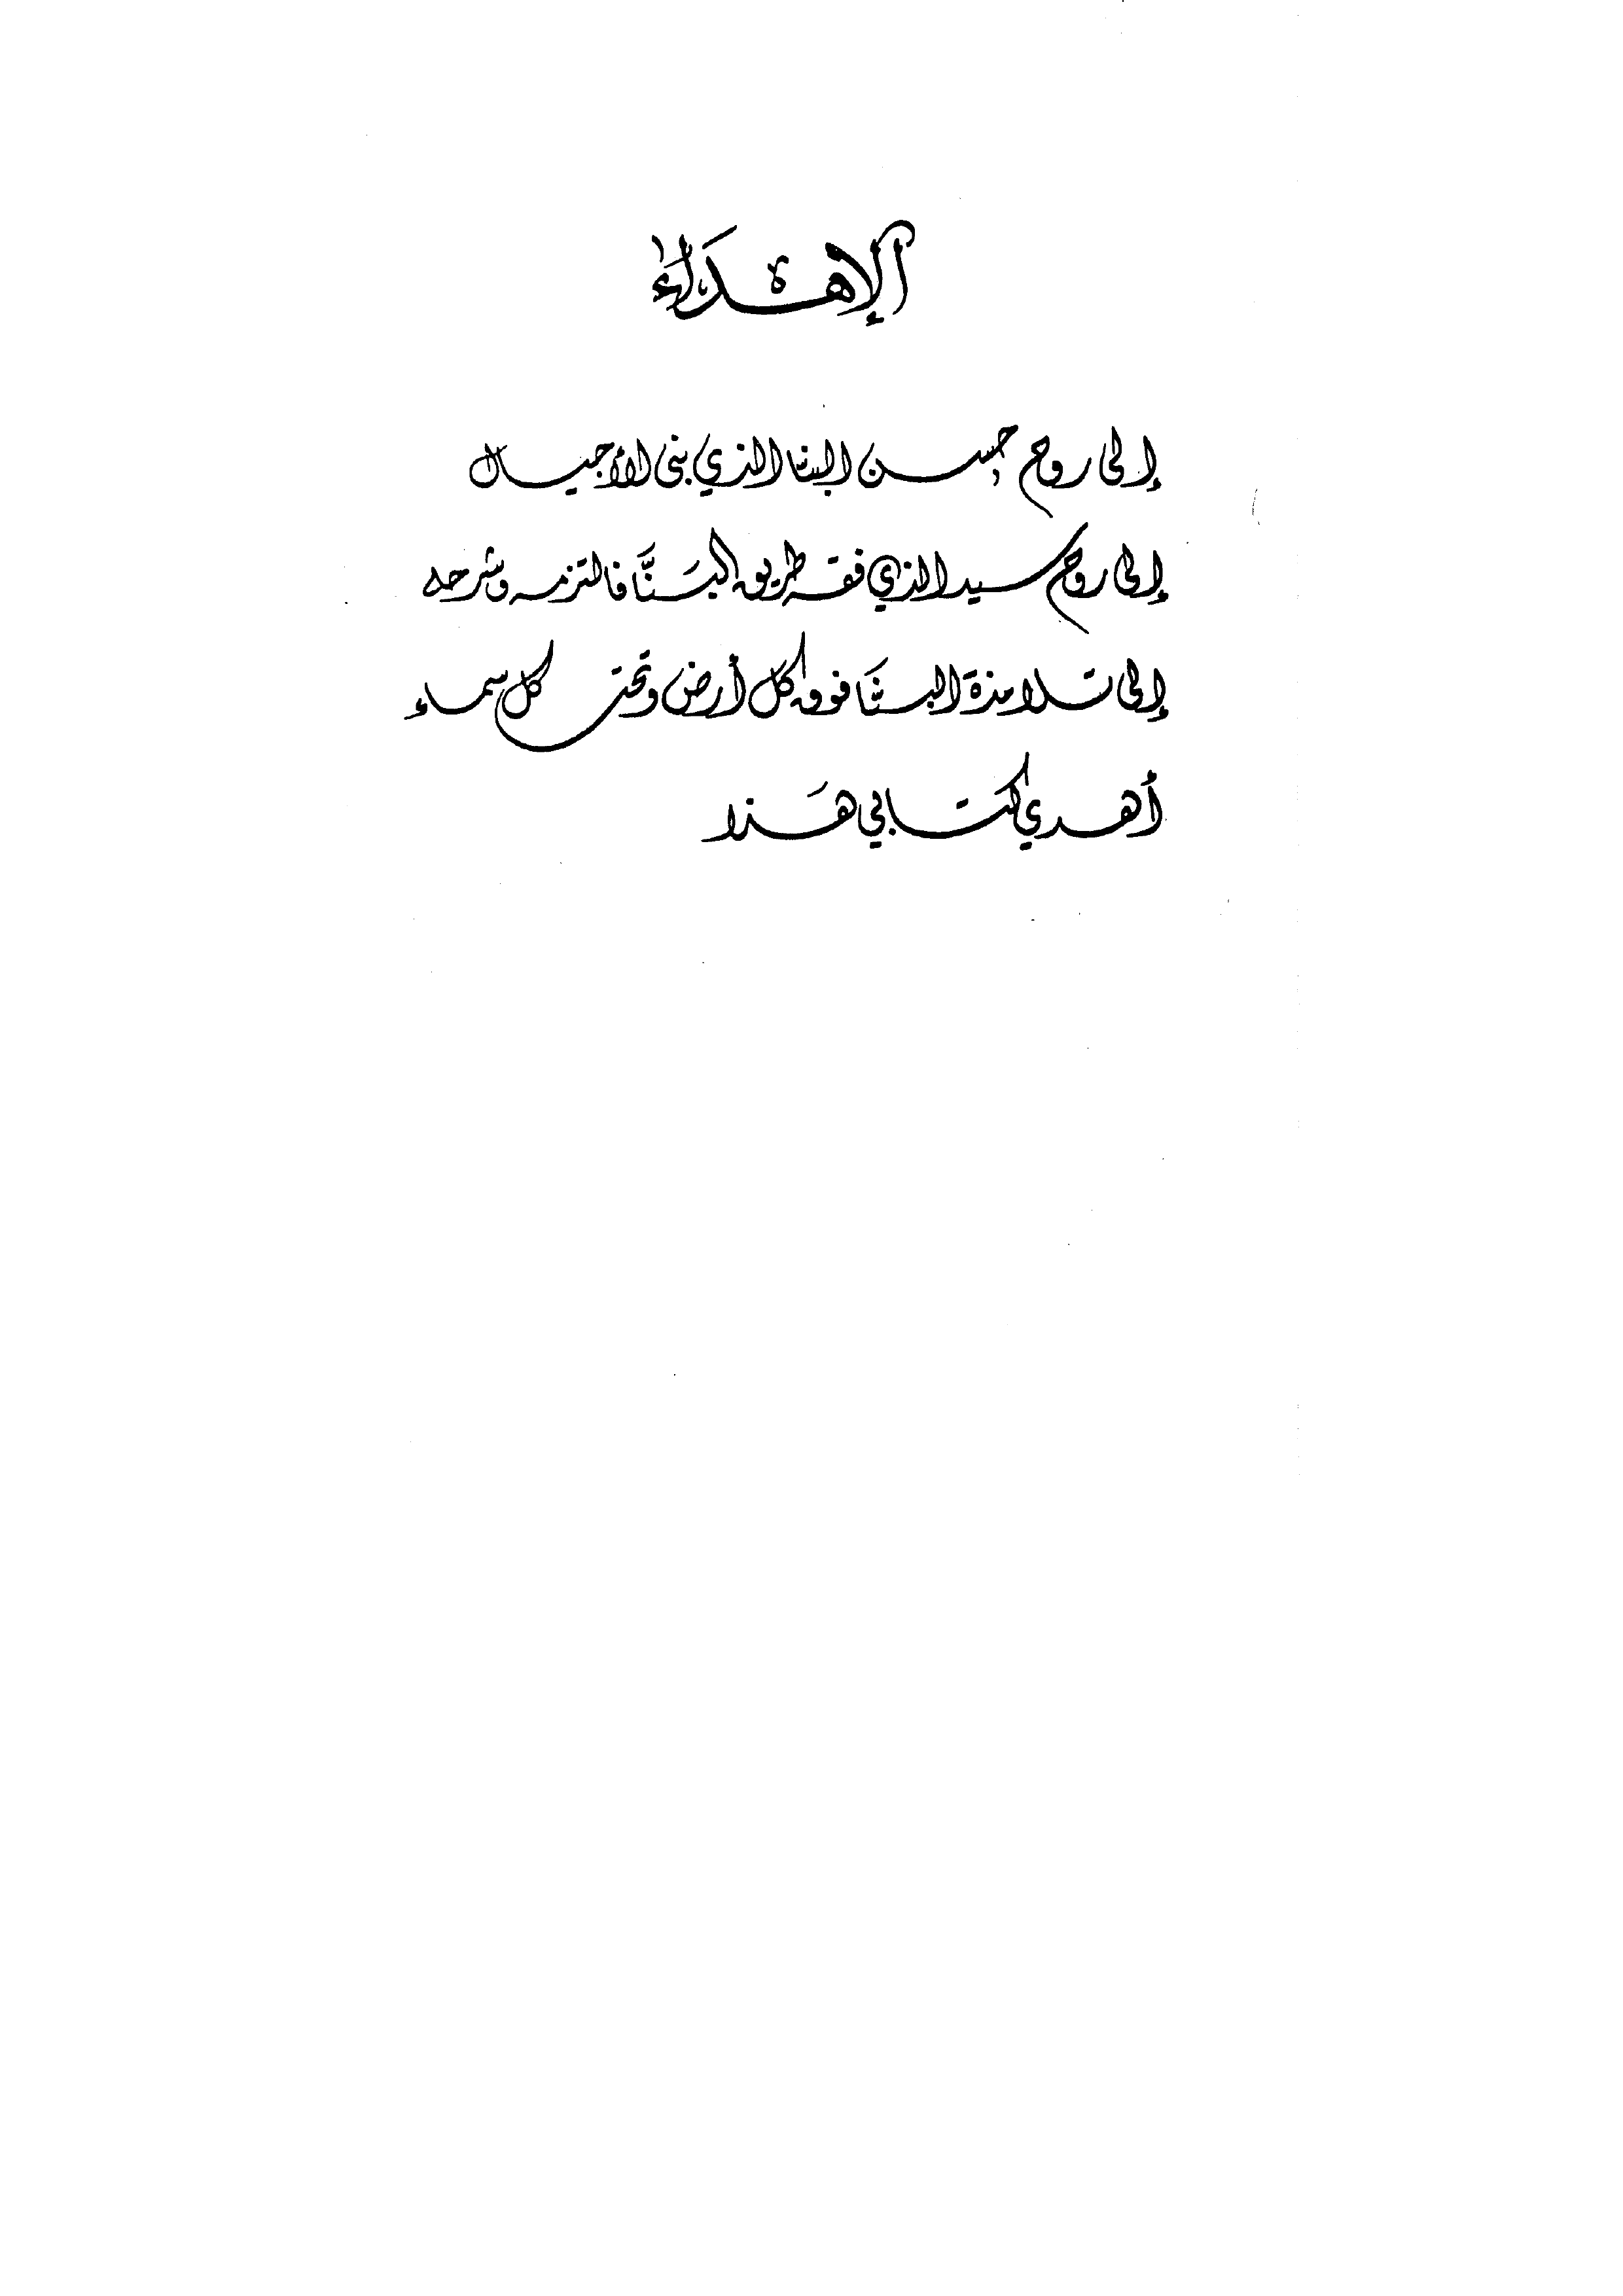 الإهْدَاء
إلى روح حسن البنا الذي بنى الأجيال
إلى روح سيد الذي فقه طريق البَنَّا فالتزمه وشرحه
إلى تلامذة البنَّا فوق كل أرض وتحت كل سماء
أهدي كتابي هَذا